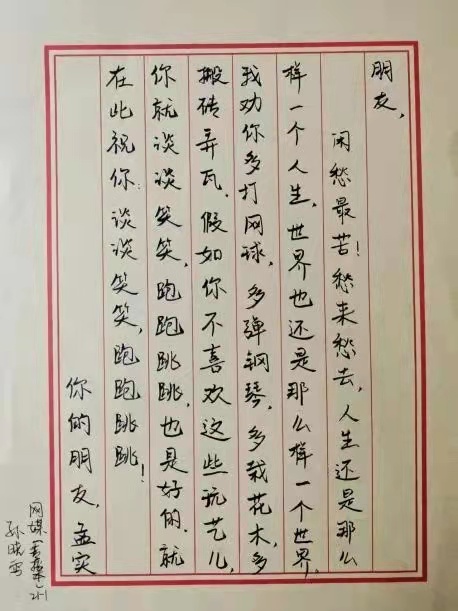 朋友，
闲愁最苦！愁来愁去，人生还是那么
样一个人生，世界也还是那么样一个世界，
我劝你多打网球，多弹钢琴，多栽花木，多
搬砖弄瓦．假如你不喜欢这些玩艺儿，
你就谈谈笑笑，跑跑跳跳，也是好的．就
在此祝你谈谈笑笑，跑跑跳跳！
你的朋友，孟实
网媒
孙晓雪